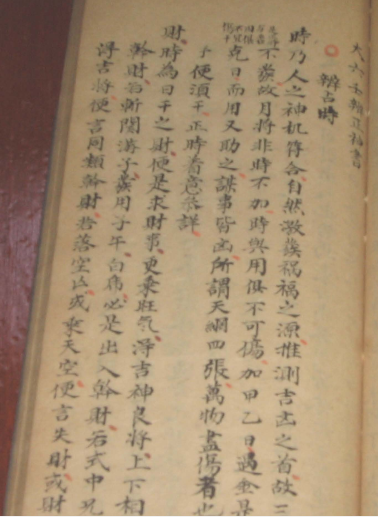 大六壬辨正秘書
辨占時
時乃人之神机符合自然激發禍福之源推測吉凶之首故三
不發故月將非時不加時與用俱不可傷加甲乙日遇金是
克日而用又助之謀事皆凶所謂天網四張萬物盡傷者也
予便須干正時着意參詳
財時為日干之財便是求財事更乘旺氣得吉神良將上下相
幹財若斬關游子發用子午白為必是出入幹財右式中見
得吉將便言同類幹財若落空亡或乘天空便言失財或財